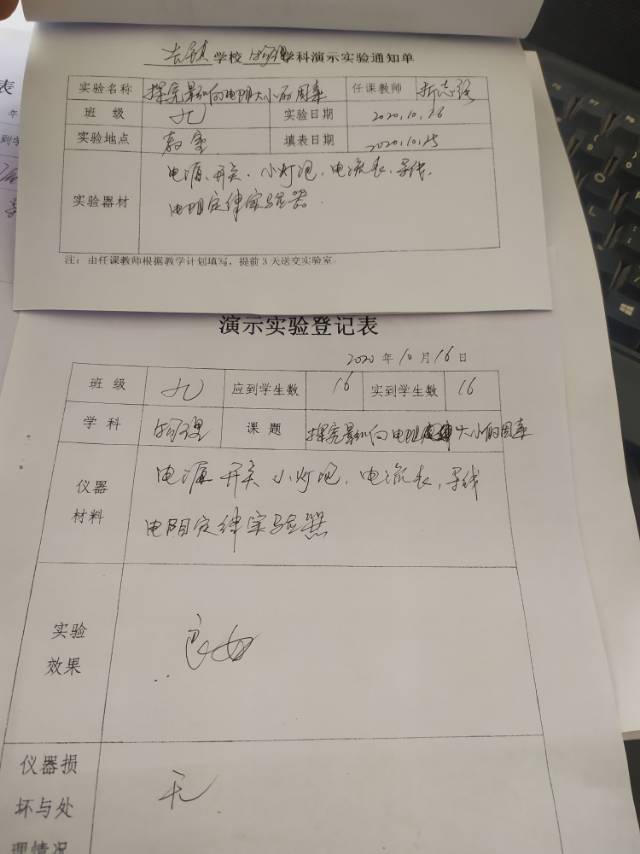 学校 物理 学科演示实验通知单
实验名称 探究影响电阻大小的因素 任课教师
班 级 九 实验日期 2020.10.16
实验地点 教室 填表日期 2020.10.15
实验器材 电源、开关、小灯泡、电流表、导线、
电阻定律实验器
注：由任课教师根据教学计划填写，提前3天送交实验室
演示实验登记表
2020 年 10 月 16 日
班 级 九 应到学生数 16 实到学生数 16
学 科 物理 课 题 探究影响电阻大小的因素
仪器
材料
电源 开关 小灯泡、电流表、导线
电阻定律实验器
实验
效果
良好
仪器损
坏与处
理情况
无
表